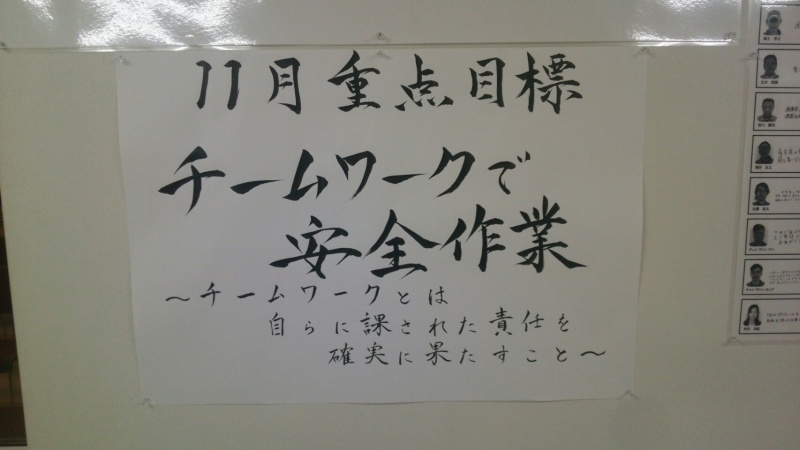 11月重点目標
チームワークで
安全作業
～チームワークとは
自らに課された責任を
確実に果たすこと～